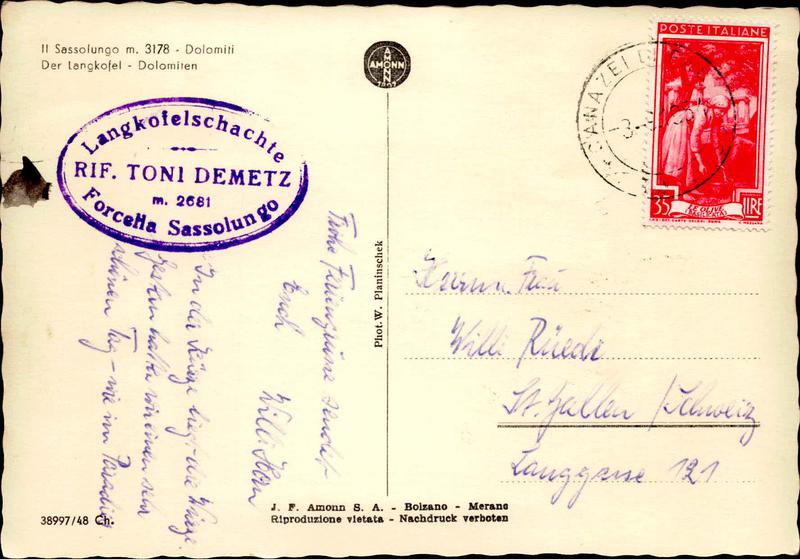 Il Sassolungo m. 3178 - Dolomiti
Der Langkofel - Dolomiten
AMONN
AMONN
1802
Langkofelschachte
RIF. TONI DEMETZ
m. 2681
Forcella Sassolungo
POSTE ITALIANE
35 LIRE
LE OLIVE
CANAZEI
Frohe Feriengrüsse sendet
Euch Willi
In der Kürze liegt die Würze.
Gestern hatten wir einen sehr
schönen Tag - wie im Paradies
Phot. W. Planinschek
Herrn u. Frau
Willi Rüedi
St. Gallen / Schweiz
Langgasse 121
38997/48 Ch.
J. F. Amonn S. A. - Bolzano - Merano
Riproduzione vietata - Nachdruck verboten